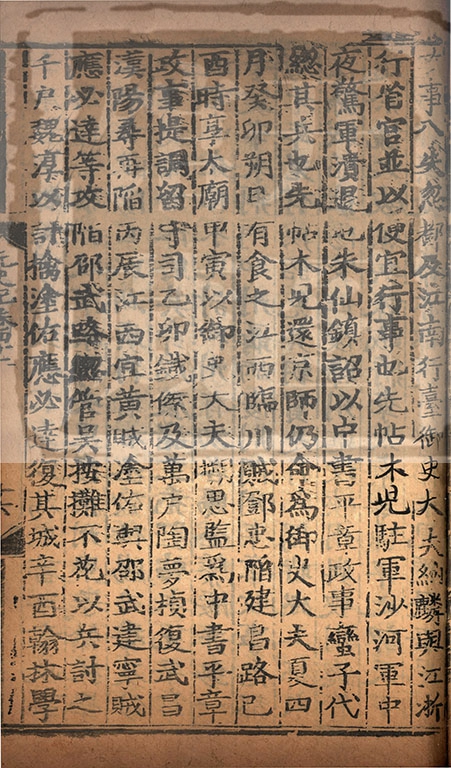 事八失忽都及江南行臺御史大夫納麟與江浙
行省官並以便宜行事也先帖木兒駐軍沙河軍中
夜驚軍潰退屯朱仙鎮詔以中書平章政事蠻子代
總其兵也先帖木兒還京師仍命爲御史大夫夏四
月癸卯朔日有食之江西臨川賊鄧忠陷建昌路己
酉時享太廟甲寅以御史大夫搠思監爲中書平章
政事提調留守司乙卯鐵傑及萬戶陶夢楨復武昌
漢陽尋再陷丙辰江西宜黃賊塗佑與邵武建寧賊
應必達等攻陷邵武路總管吳按攤不花以兵討之
千戶魏淳以計擒塗佑應必達復其城辛酉翰林學